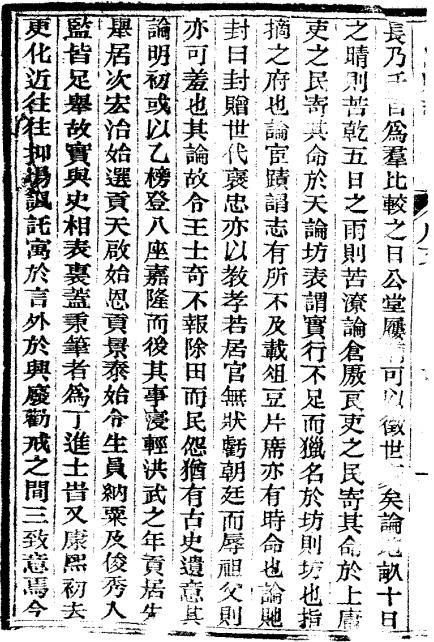 長乃千百爲羣比較之日公堂屨可以徵世矣論地畝十日
之晴則苦乾五日之雨則苦潦論倉厫良吏之民寄其命於上庸
吏之民寄其命於天論坊表謂實行不足而獵名於坊則坊也指
摘之府也論宦蹟謂志有所不及載俎豆片席亦有時命也論貤
封曰封贈世代褒忠亦以教孝若居官無狀虧朝廷而辱祖父則
亦可羞也其論故令王士奇不報除田而民怨猶有古史遺意其
論明初或以乙榜登八座嘉隆而後其事寖輕洪武之年貢居先
舉居次宏治始選貢天啟始恩貢景泰始令生員納粟及俊秀入
監皆足舉故實與史相表裏蓋秉筆者爲丁進士昔又康熙初去
更化近往往抑揚諷託寓於言外於興廢勸戒之間三致意焉今